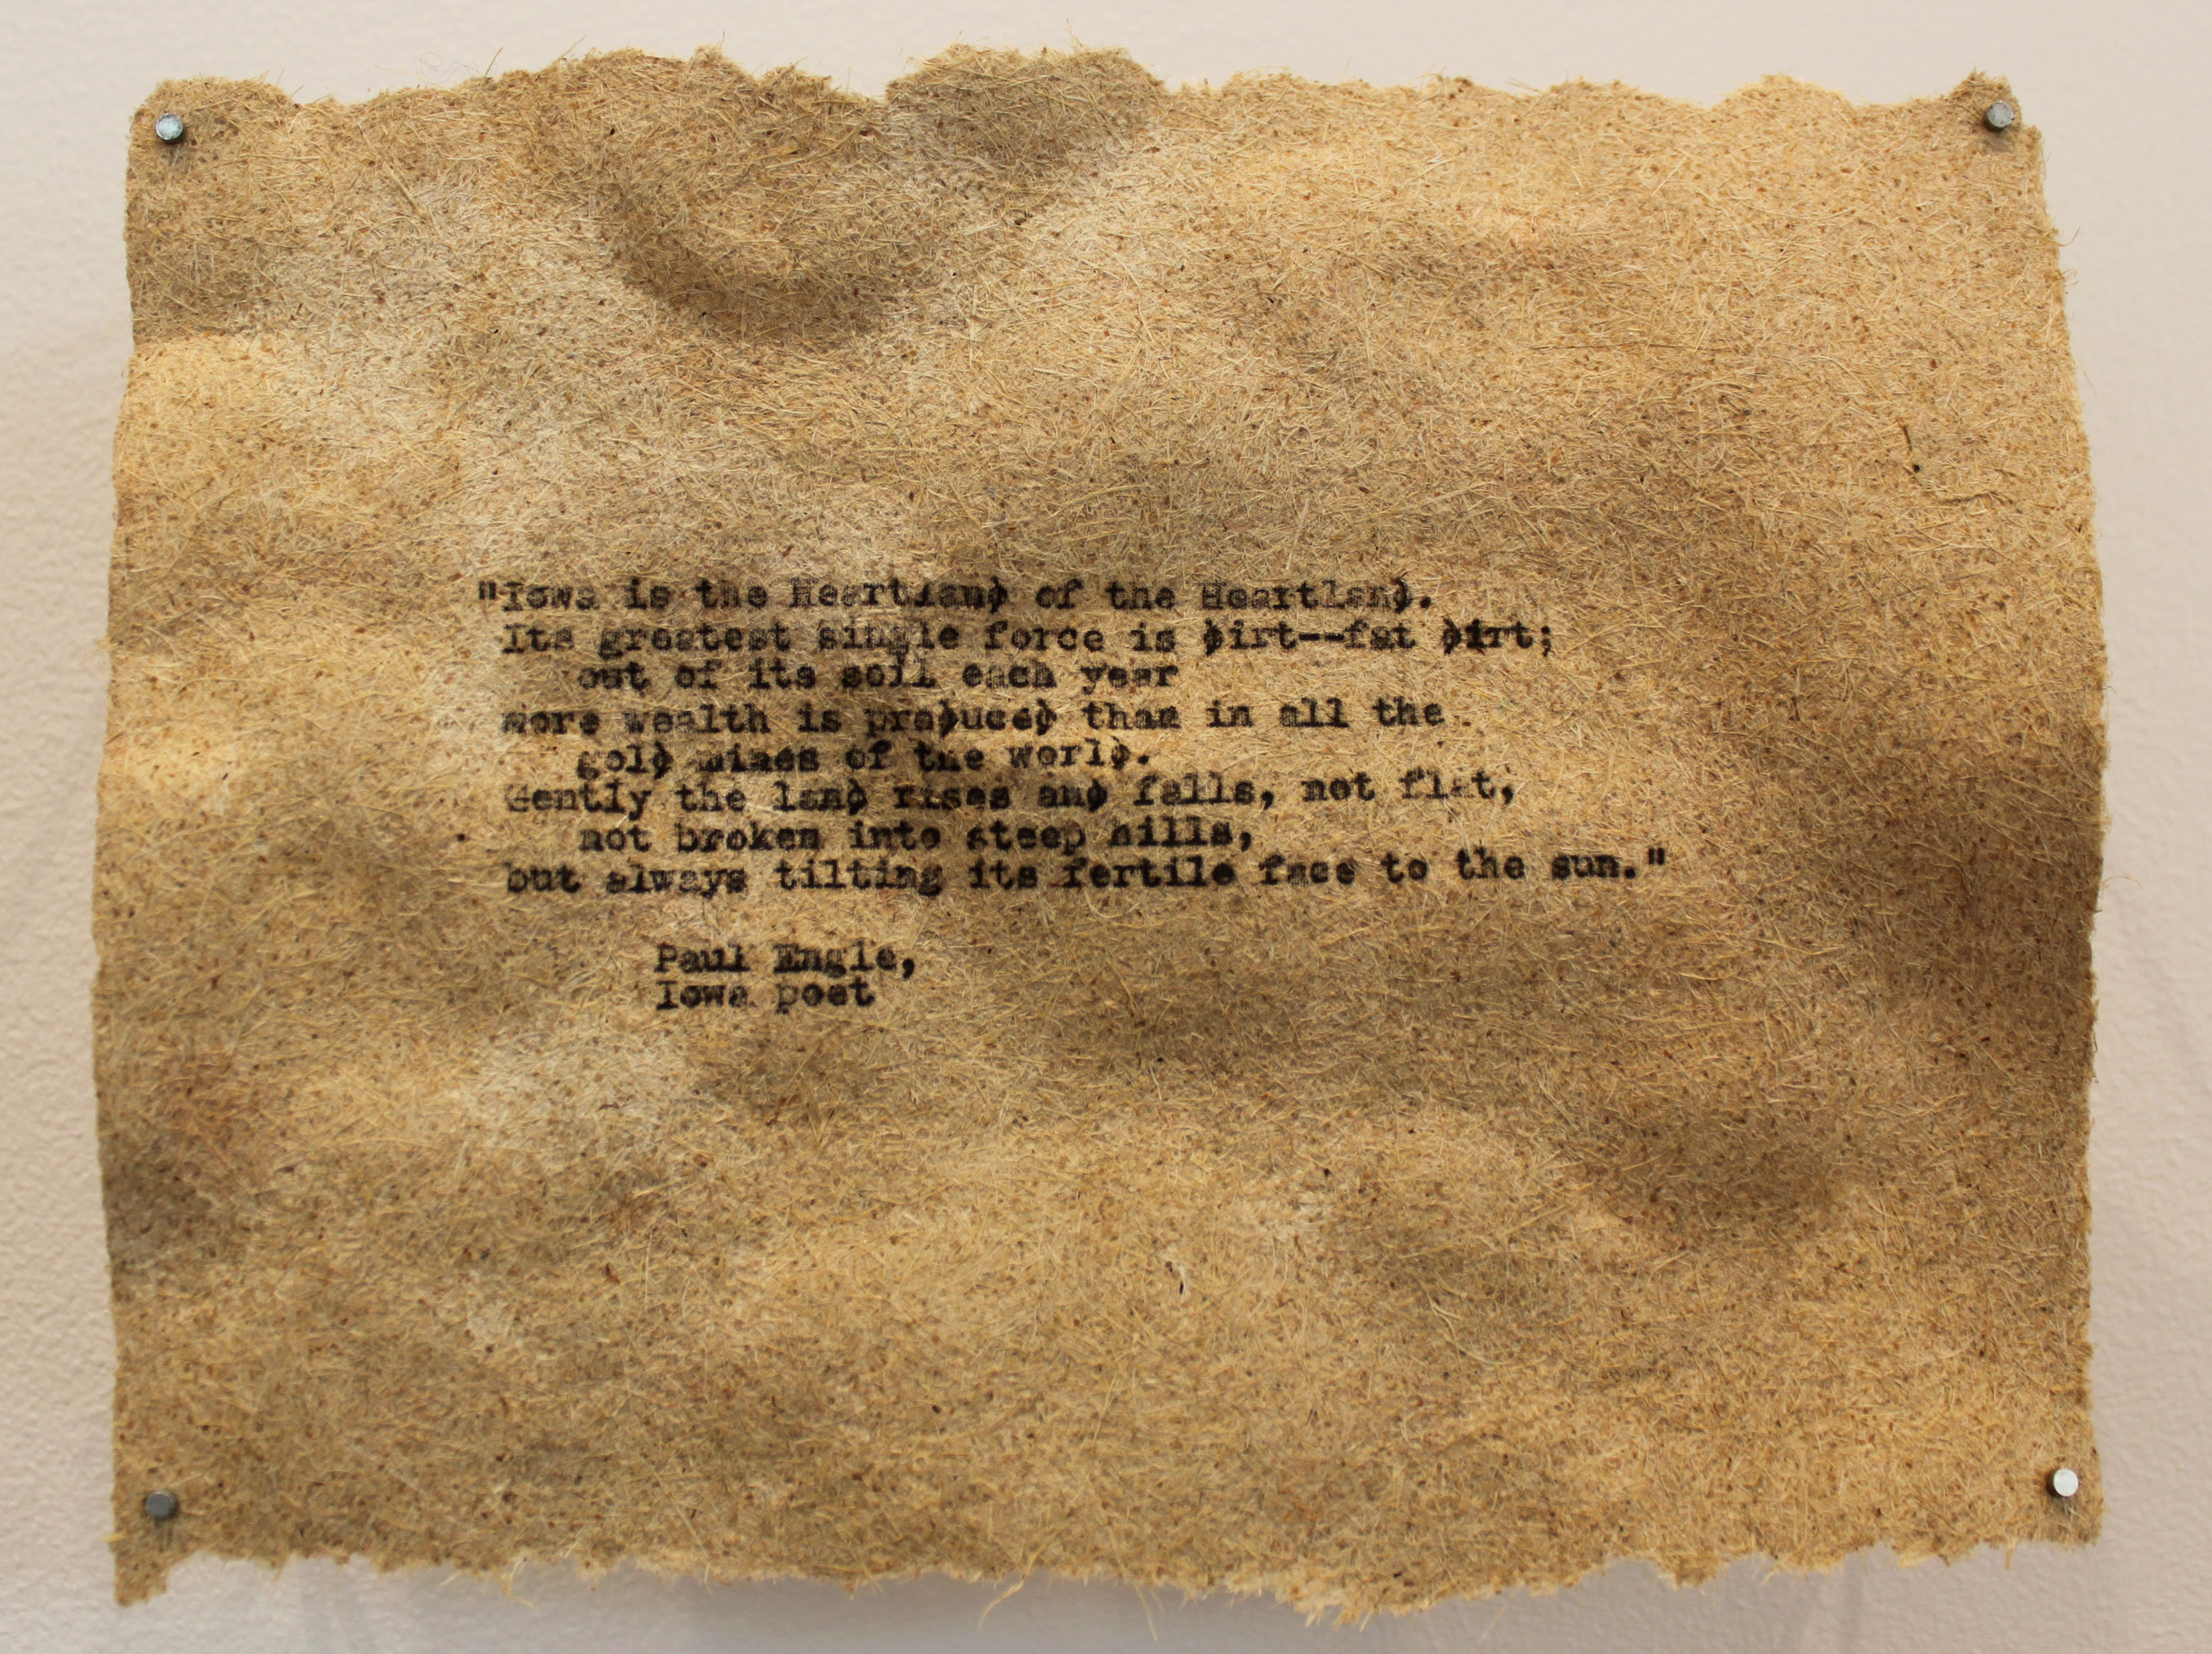 "Iowa is the Heartland of the Heartland.
Its greatest single force is dirt--fat dirt;
out of its soil each year
more wealth is produced than in all the
gold mines of the world.
Gently the land rises and falls, not flat,
not broken into steep hills,
but always tilting its fertile face to the sun."
Paul Engle,
Iowa poet